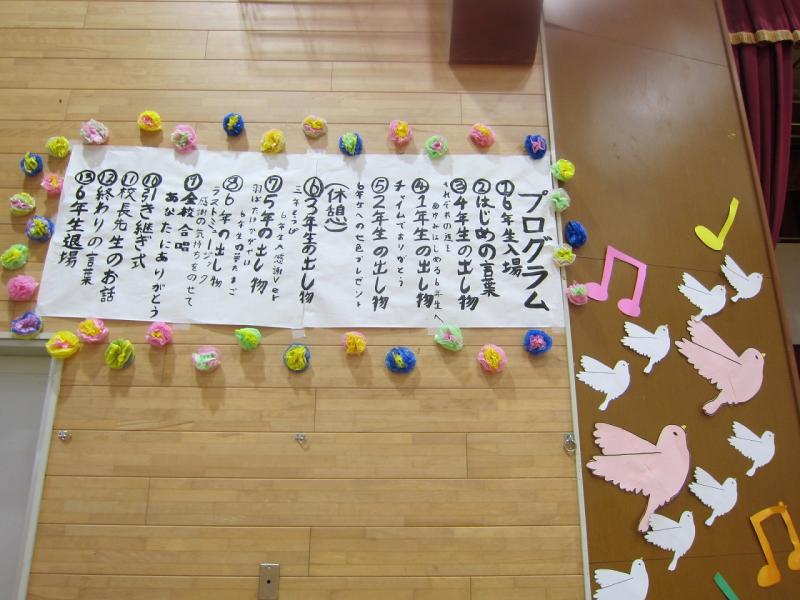 プログラム
①6年生入場
②はじめの言葉
③4年生の出し物
それぞれの道を
あゆみはじめる6年生へ
④1年生の出し物
チャイムでありがとう
⑤2年生の出し物
6年生への七色プレゼント
(休憩)
⑥3年生の出し物
三年とうげ
⑦5年の出し物
6年生へ感謝ver
羽ばたけかがやけ
6年生の夢たまご
⑧6年の出し物
ラストミュージック
感謝の気持ちをのせて
⑨全校合唱
あなたにありがとう
⑩引き継ぎ式
⑪校長先生のお話
⑫終わりの言葉
⑬6年生退場